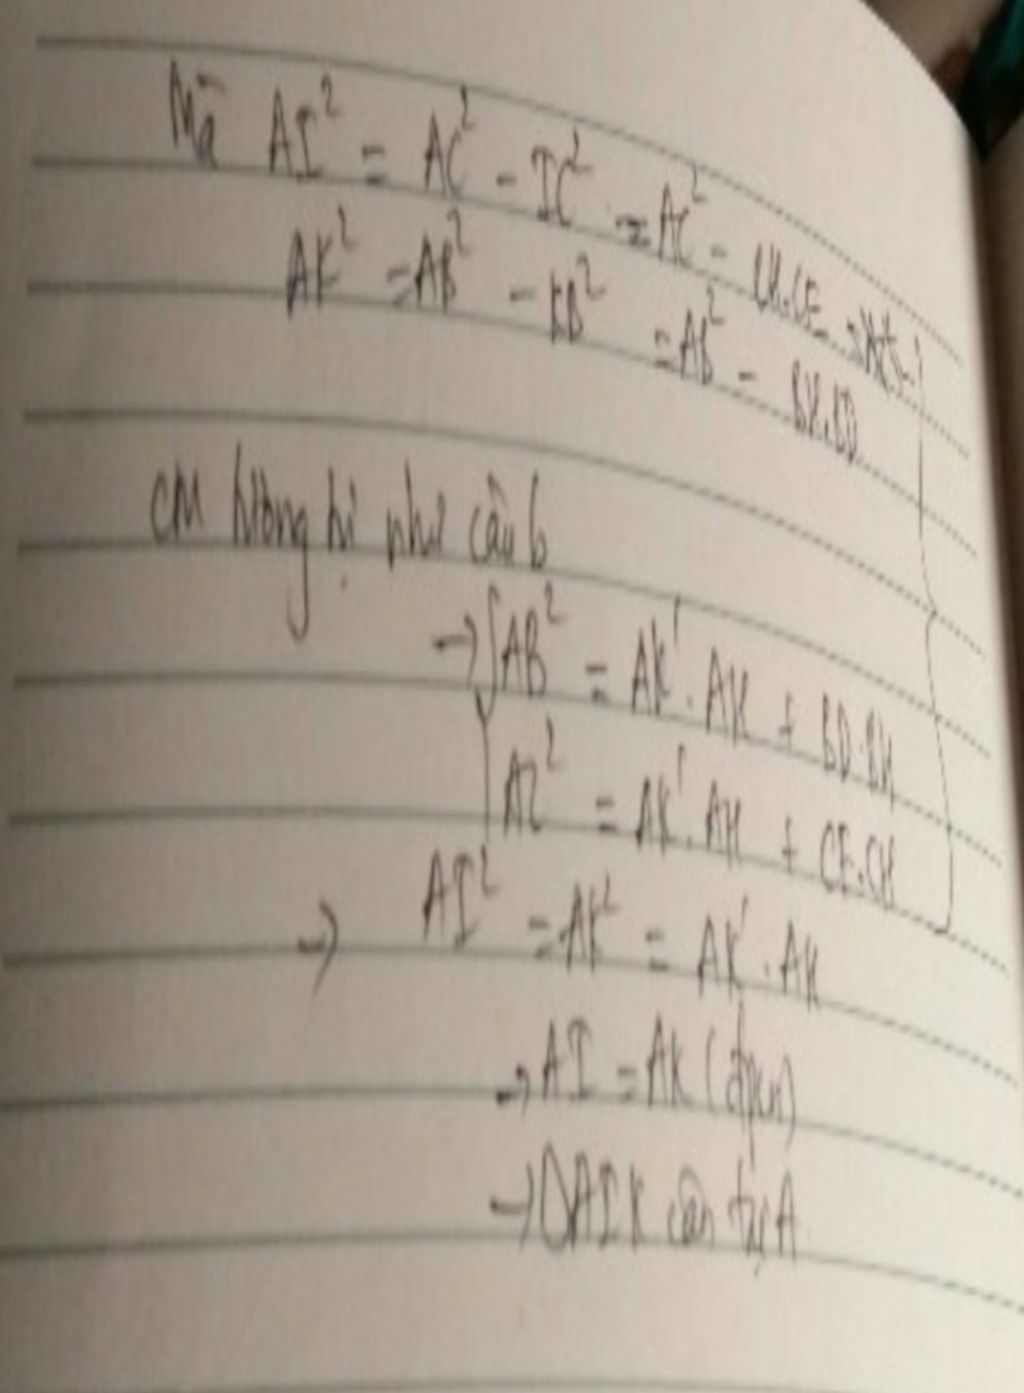 Mà AI² = AC² - IC² = AC² - CH.CE
AK² = AB² - KB² = AB² - BH.BD
CM tương tự như câu b
→ { AB² = AK'.AH + BD.BH
AC² = AK'.AH + CE.CH
→ AI² = AK² = AK'.AH
→ AI = AK (đpcm)
→ △AIK cân tại A